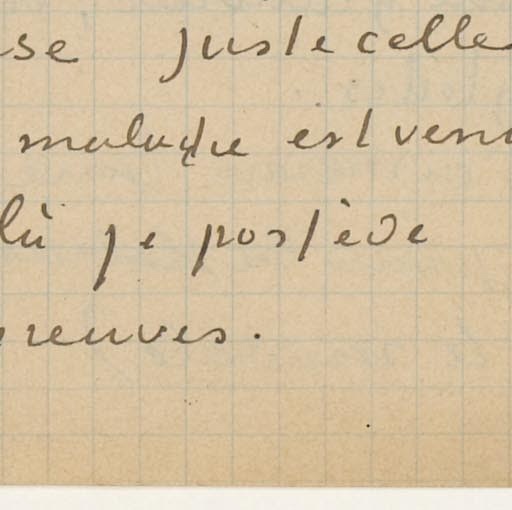 se juste celle
maladie est venu
là je possède
preuves.